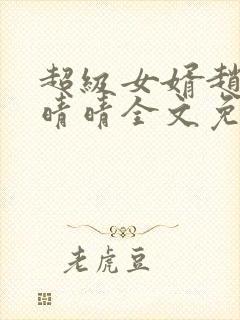 超级女婿趙
晴晴全文免
老虎豆